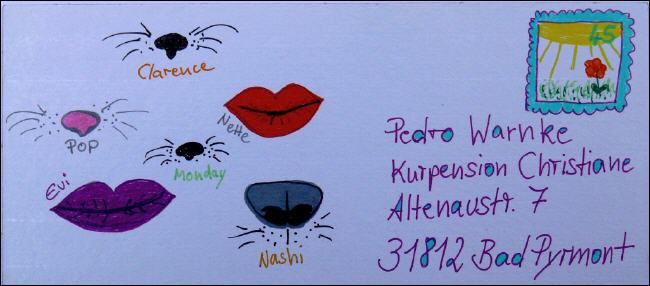 Clarence
45
Nette
POP
Monday
Evi
Nashi
Pedro Warnke
Kurpension Christiane
Altenaustr. 7
31812 Bad Pyrmont